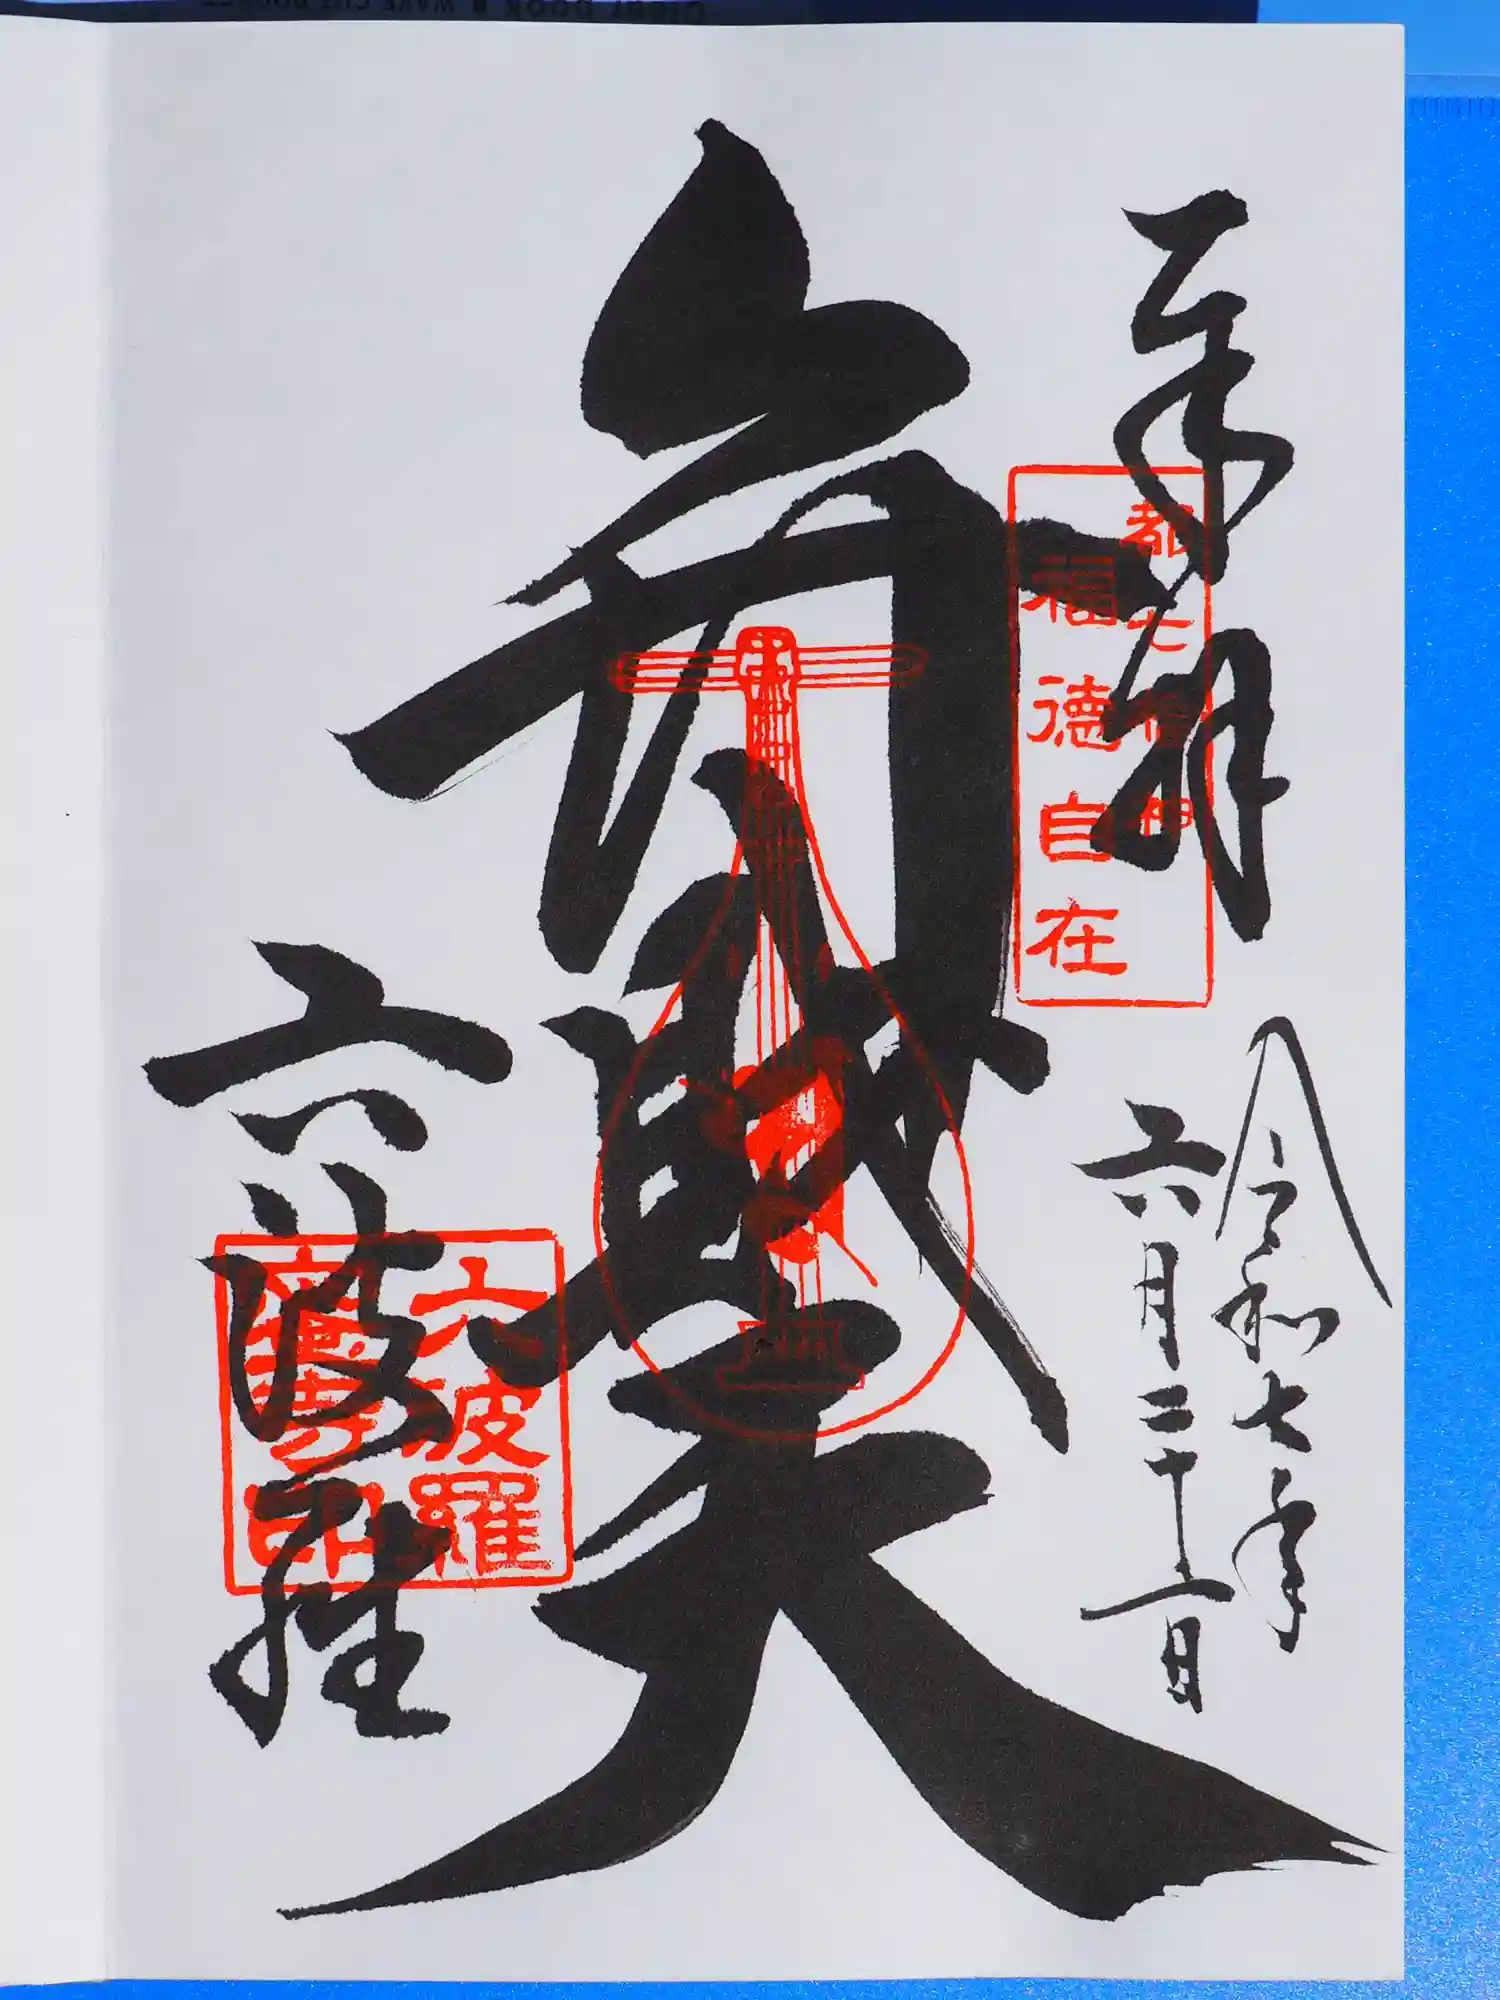 奉拝
都七福神
福徳自在
令和七年
六月二十一日
弁財天
六波羅
六波羅
蜜寺印